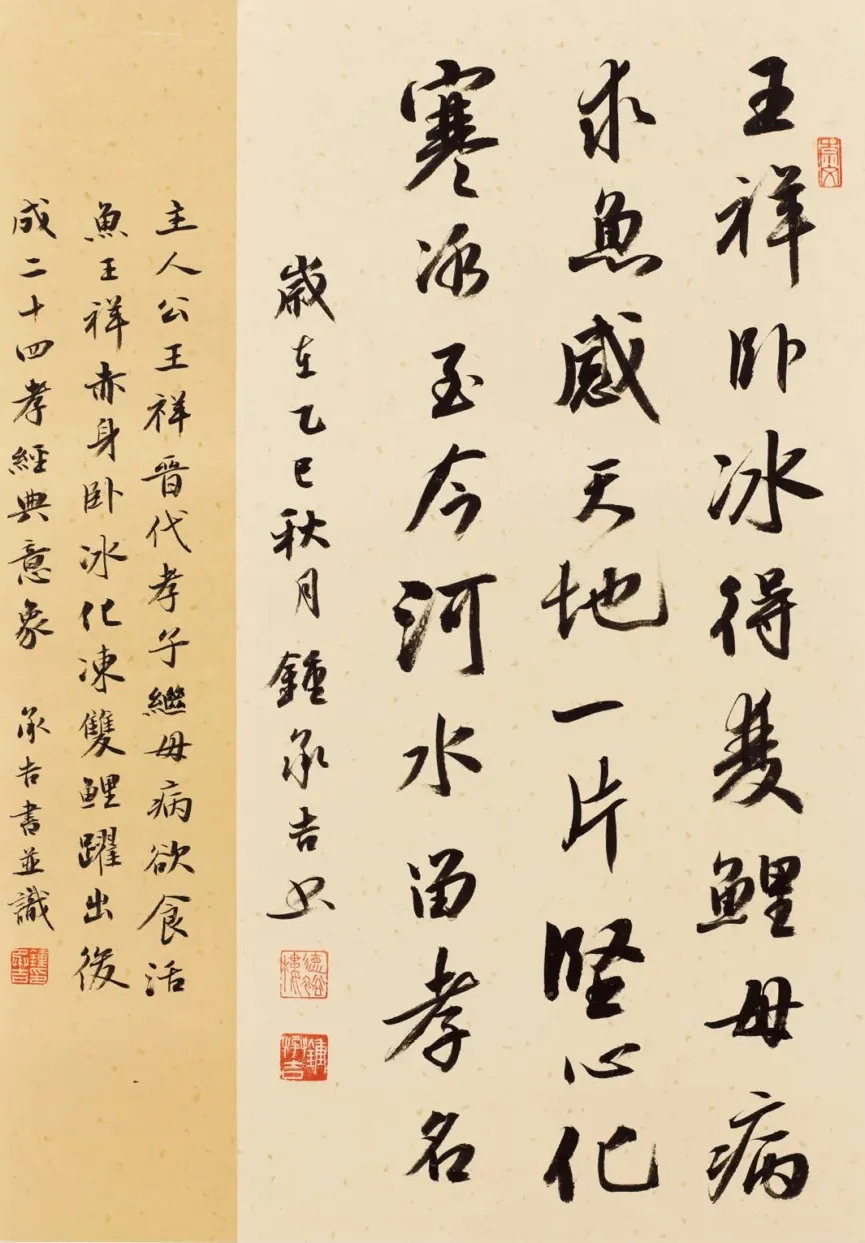 王祥卧冰得双鯉母病
求魚感天地一片堅心化
寒冰至今河水留孝名
歲在乙巳秋月鍾承吉书
主人公王祥晉代孝子繼母病欲食活
魚王祥赤身卧冰化凍雙鯉躍出後
成二十四孝經典意象 承吉書並識